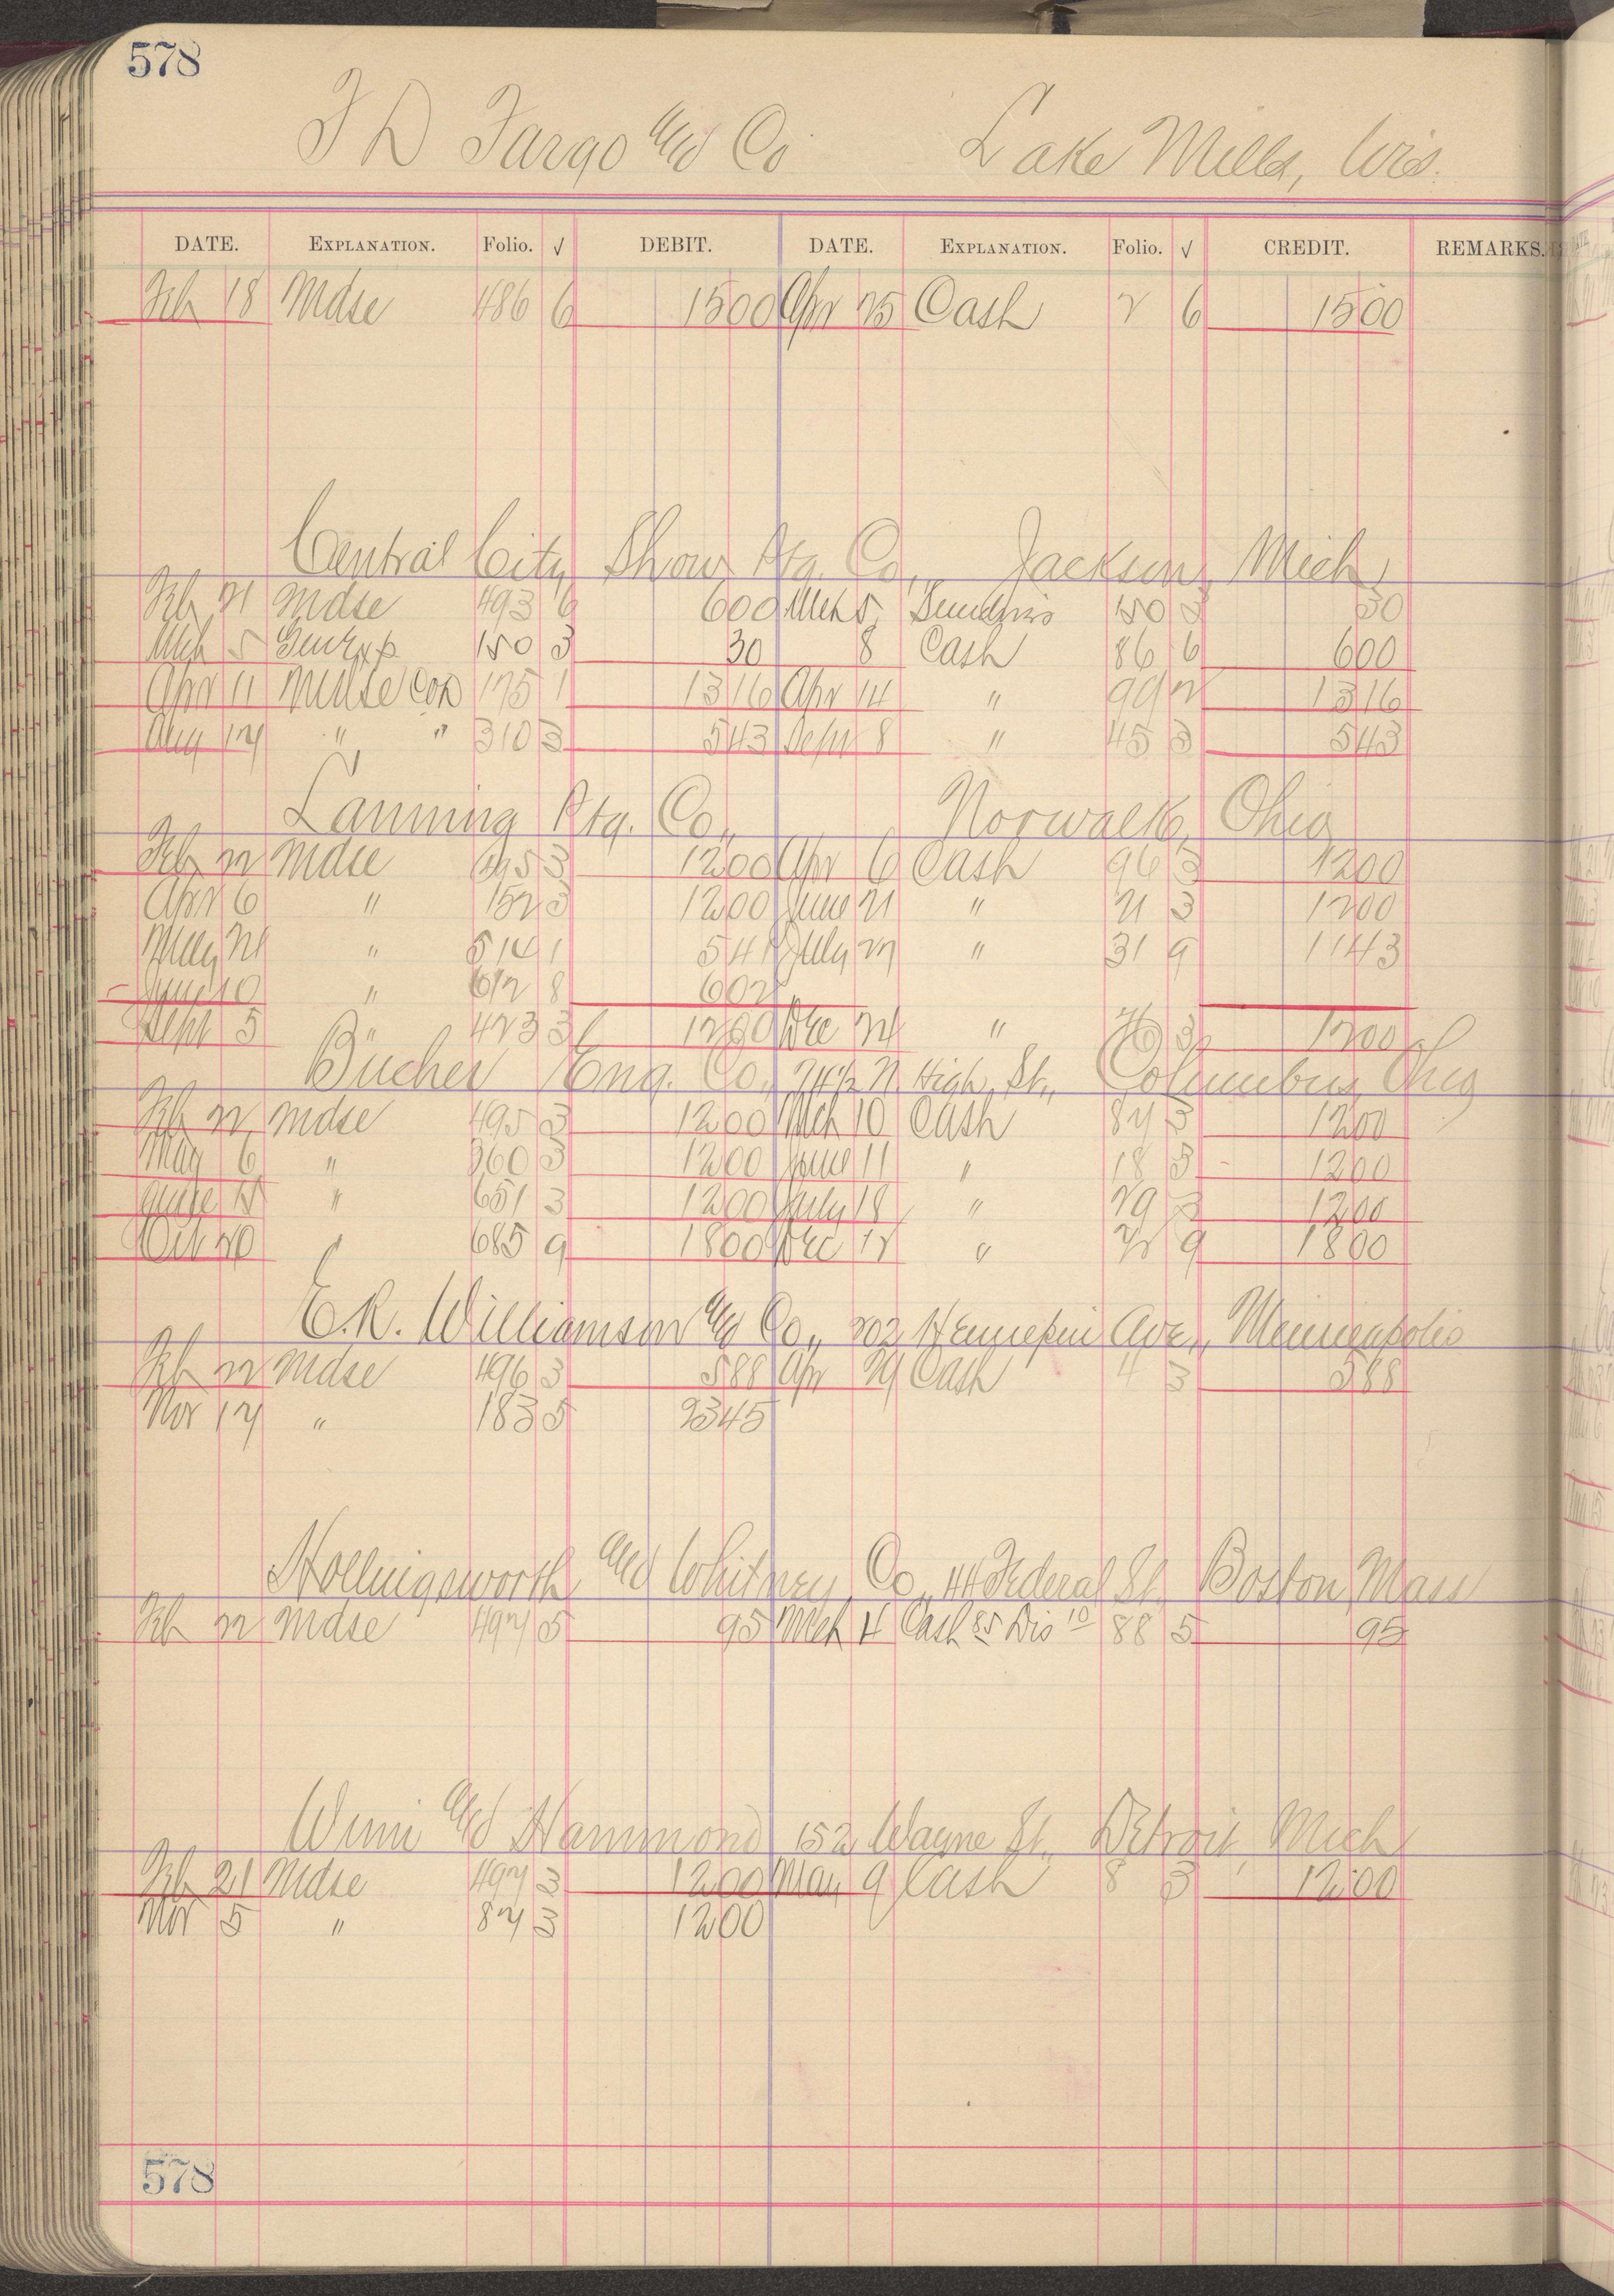 578
F D Fargo and Co Lake Mills, Wis.
DATE. EXPLANATION. Folio. √ DEBIT. DATE. EXPLANATION. Folio. √ CREDIT. REMARKS.
Feb 18 Mdse 486 6 1500 Apr 25 Cash 2 6 1500
Central City Show Ptg. Co., Jackson, Mich
Feb 21 Mdse 493 6 600 Mch 5 Sundries 150 3 30
Mch 5 Gen Exp 150 3 30 8 Cash 86 6 600
Apr 11 Mdse Con 175 1 1316 Apr 14 " 99 2 1316
Aug 17 " " 310 3 543 Sept 8 " 45 3 543
Lanning Ptg. Co., Norwalk, Ohio
Feb 22 Mdse 495 3 1200 Apr 6 Cash 96 3 1200
Apr 6 " 152 3 1200 June 21 " 21 3 1200
May 21 " 514 1 541 July 27 " 31 9 1143
June 10 " 612 8 602
Sept 5 " 423 3 1200 Dec 21 " 3 1200
Bucher Eng. Co., N. High St., Columbus, Ohio
Feb 22 Mdse 495 3 1200 Mch 10 Cash 87 3 1200
May 6 " 360 3 1200 June 11 " 18 3 1200
June " 651 3 1200 July 18 " 29 3 1200
Oct 20 " 685 9 1800 Dec 12 " 9 1800
E.R. Williamson and Co., 202 Hennepin Ave., Minneapolis
Feb 22 Mdse 496 3 588 Apr 29 Cash 4 3 588
Nov 17 " 183 5 2345
Hollingsworth and Whitney Co., 44 Federal St. Boston Mass
Feb 22 Mdse 497 5 95 Mch 4 Cash 85 Dis 10 88 5 95
Winn and Hammond 152 Wayne St., Detroit, Mich
Feb 21 Mdse 497 3 1200 May 9 Cash 8 3 1200
Nov 5 " 87 3 1200
578